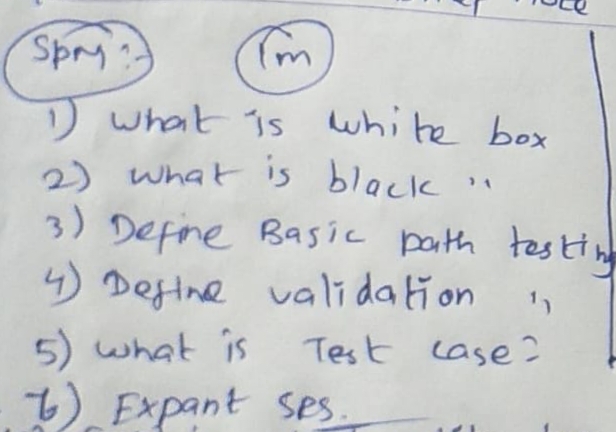 Spm :-
1m
1) what is white box
2) what is black "
3) Define Basic path testing
4) Define validation "
5) what is Test case?
6) Expant SRS.